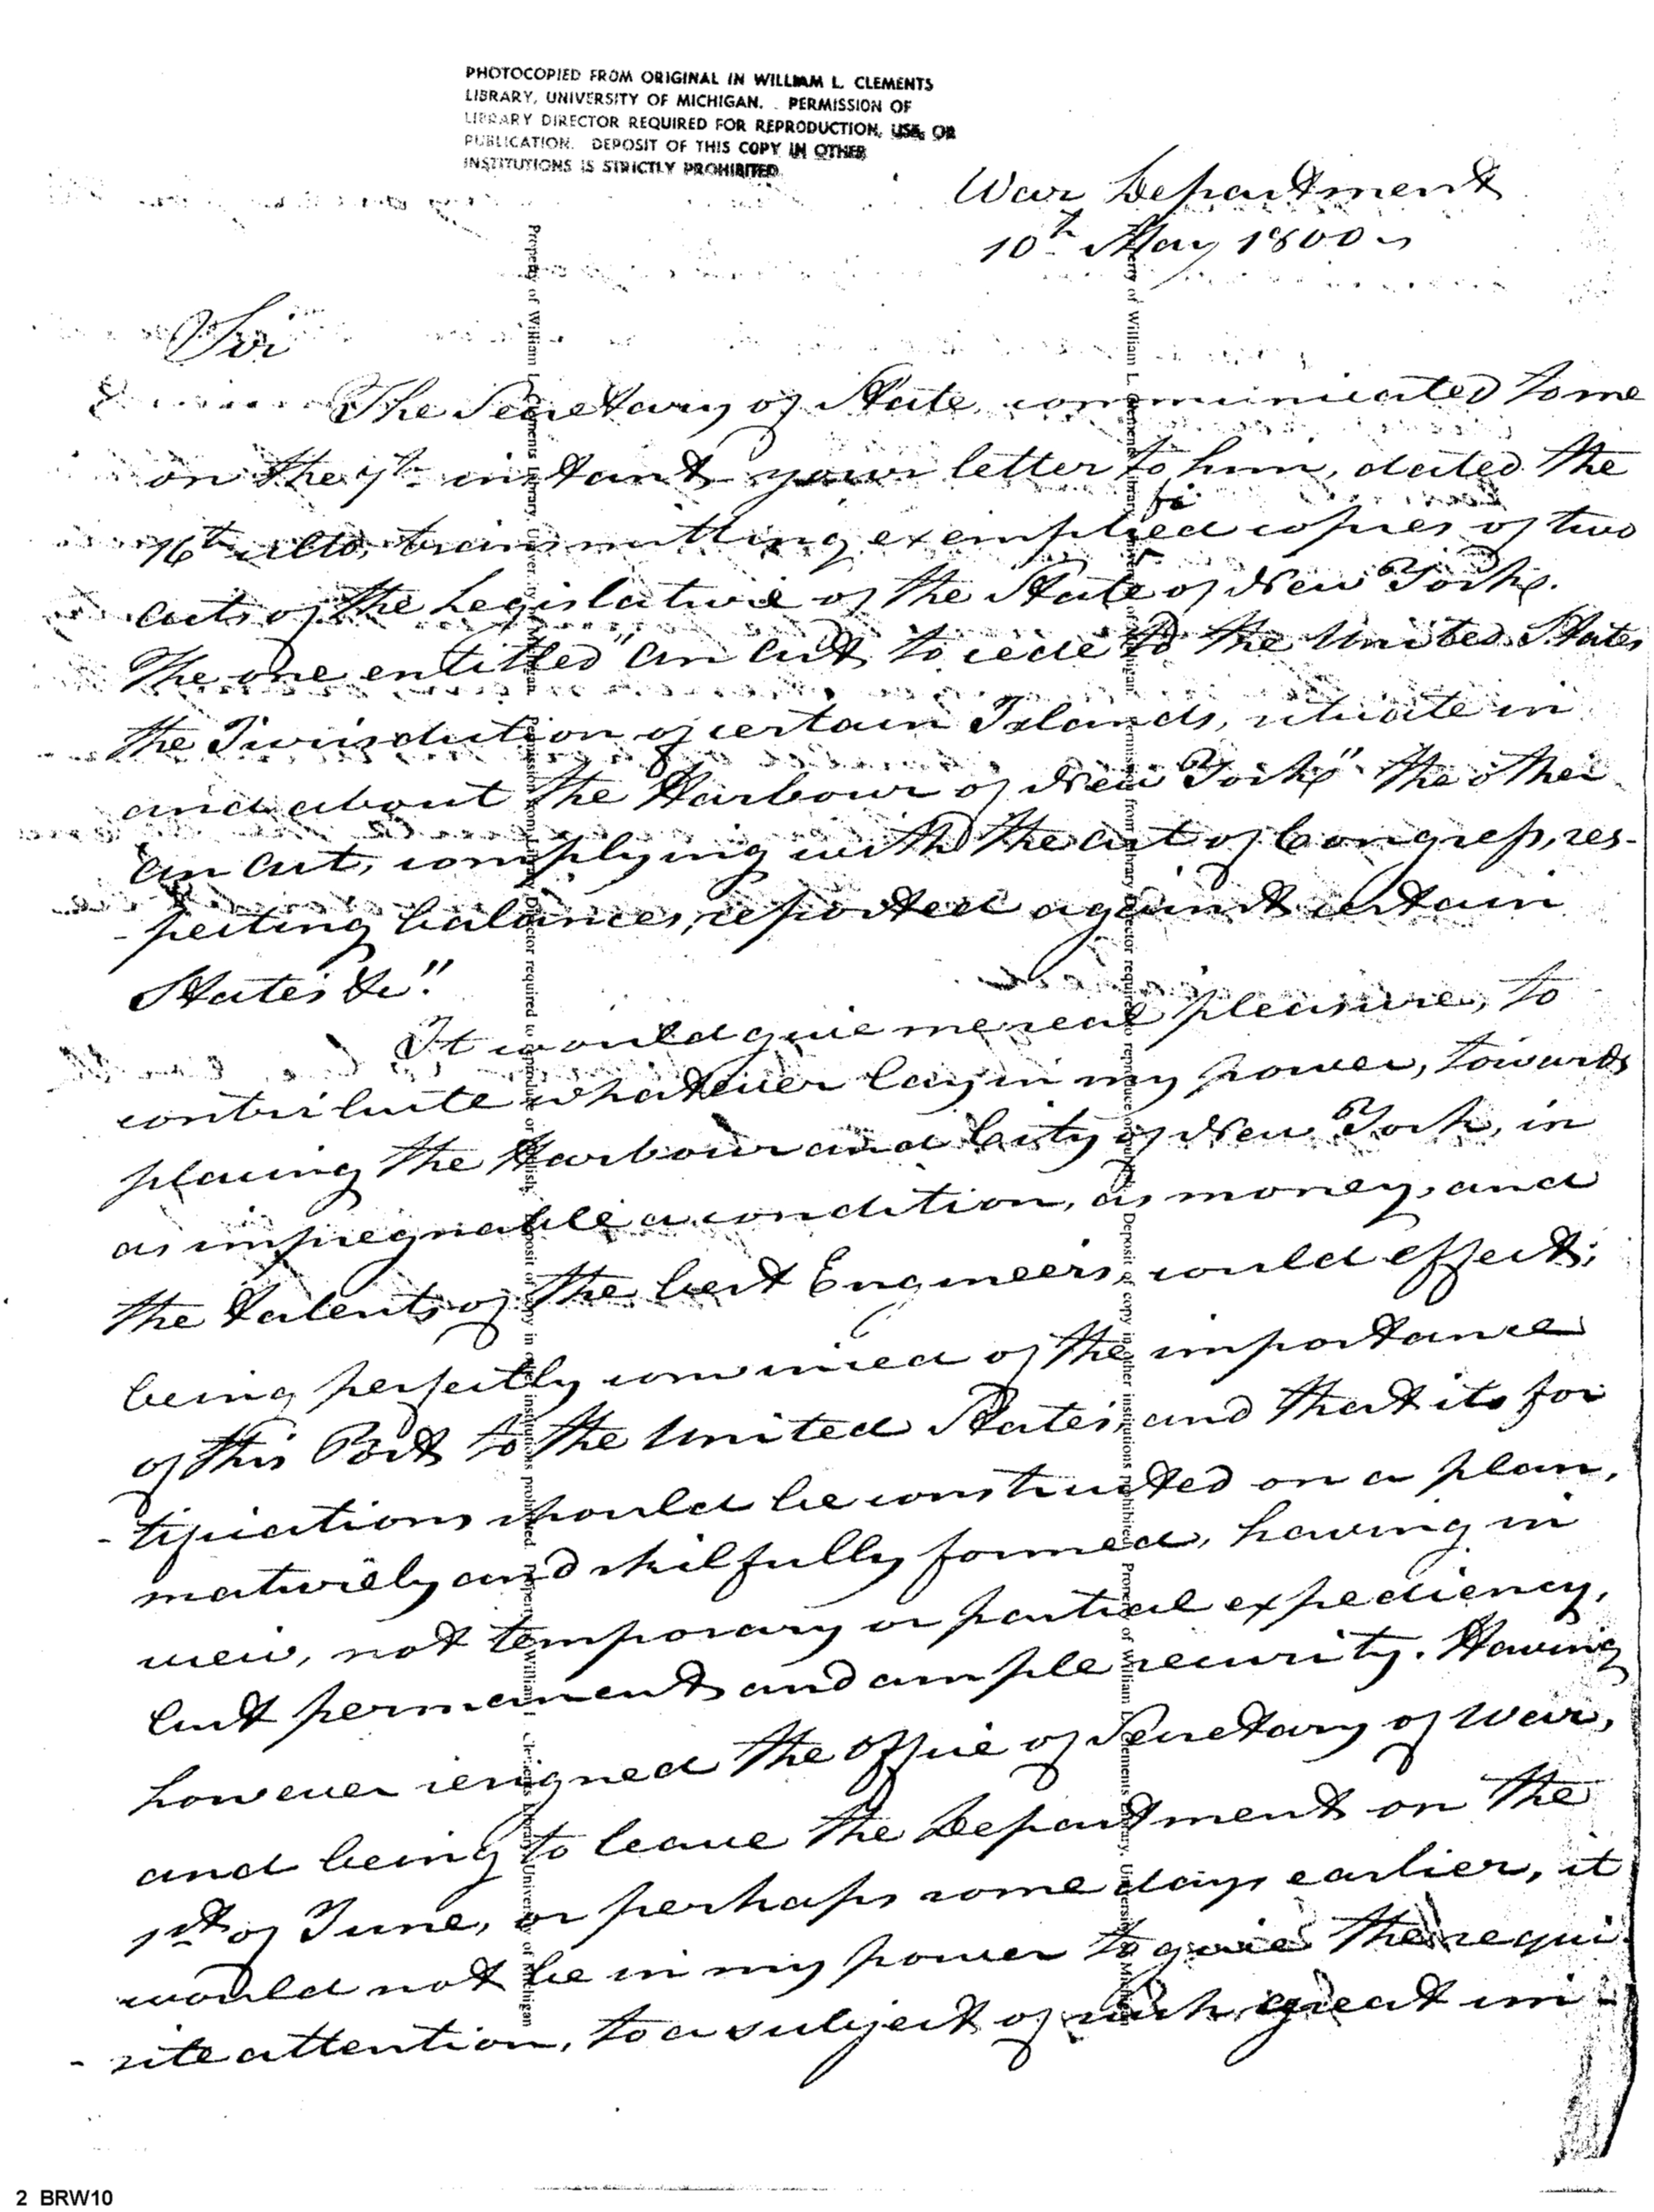 PHOTOCOPIED FROM ORIGINAL IN WILLIAM L. CLEMENTS
LIBRARY, UNIVERSITY OF MICHIGAN. PERMISSION OF
LIBRARY DIRECTOR REQUIRED FOR REPRODUCTION, USE, OR
PUBLICATION. DEPOSIT OF THIS COPY IN OTHER
INSTITUTIONS IS STRICTLY PROHIBITED
War Department
10th May 1800
Sir
The Secretary of State, communicated to me
on the 7th instant your letter to him, dated the
16th ulto, transmitting exemplified copies of two
acts of the Legislature of the State of New York.
The one entitled "an act, to cede to the United States
the Jurisdiction of certain Islands, situate in
and about the Harbour of New York" the other
"an act, complying with the act of Congress, res-
-pecting balances, reported against certain
States &c".
It would give me real pleasure, to
contribute whatever lay in my power, towards
placing the Harbour and City of New York, in
as impregnable a condition, as money, and
the talents of the best Engineers, could effect;
being perfectly convinced of the importance
of this Port to the United States, and that its for
-tifications should be constructed on a plan,
maturely and skilfully formed, having in
view, not temporary or partial expediency,
but permanent and ample security. Having
however resigned the office of Secretary of War,
and being to leave the Department on the
1st of June, or perhaps some days earlier, it
would not be in my power to give the requi-
-site attention, to a subject of such great im-
Property of William L. Clements Library, University of Michigan. Permission from Library Director required to reproduce or publish. Deposit of copy in other institutions prohibited. Property of William L. Clements Library, University of Michigan
Property of William L. Clements Library, University of Michigan. Permission from Library Director required to reproduce or publish. Deposit of copy in other institutions prohibited. Property of William L. Clements Library, University of Michigan
2 BRW10